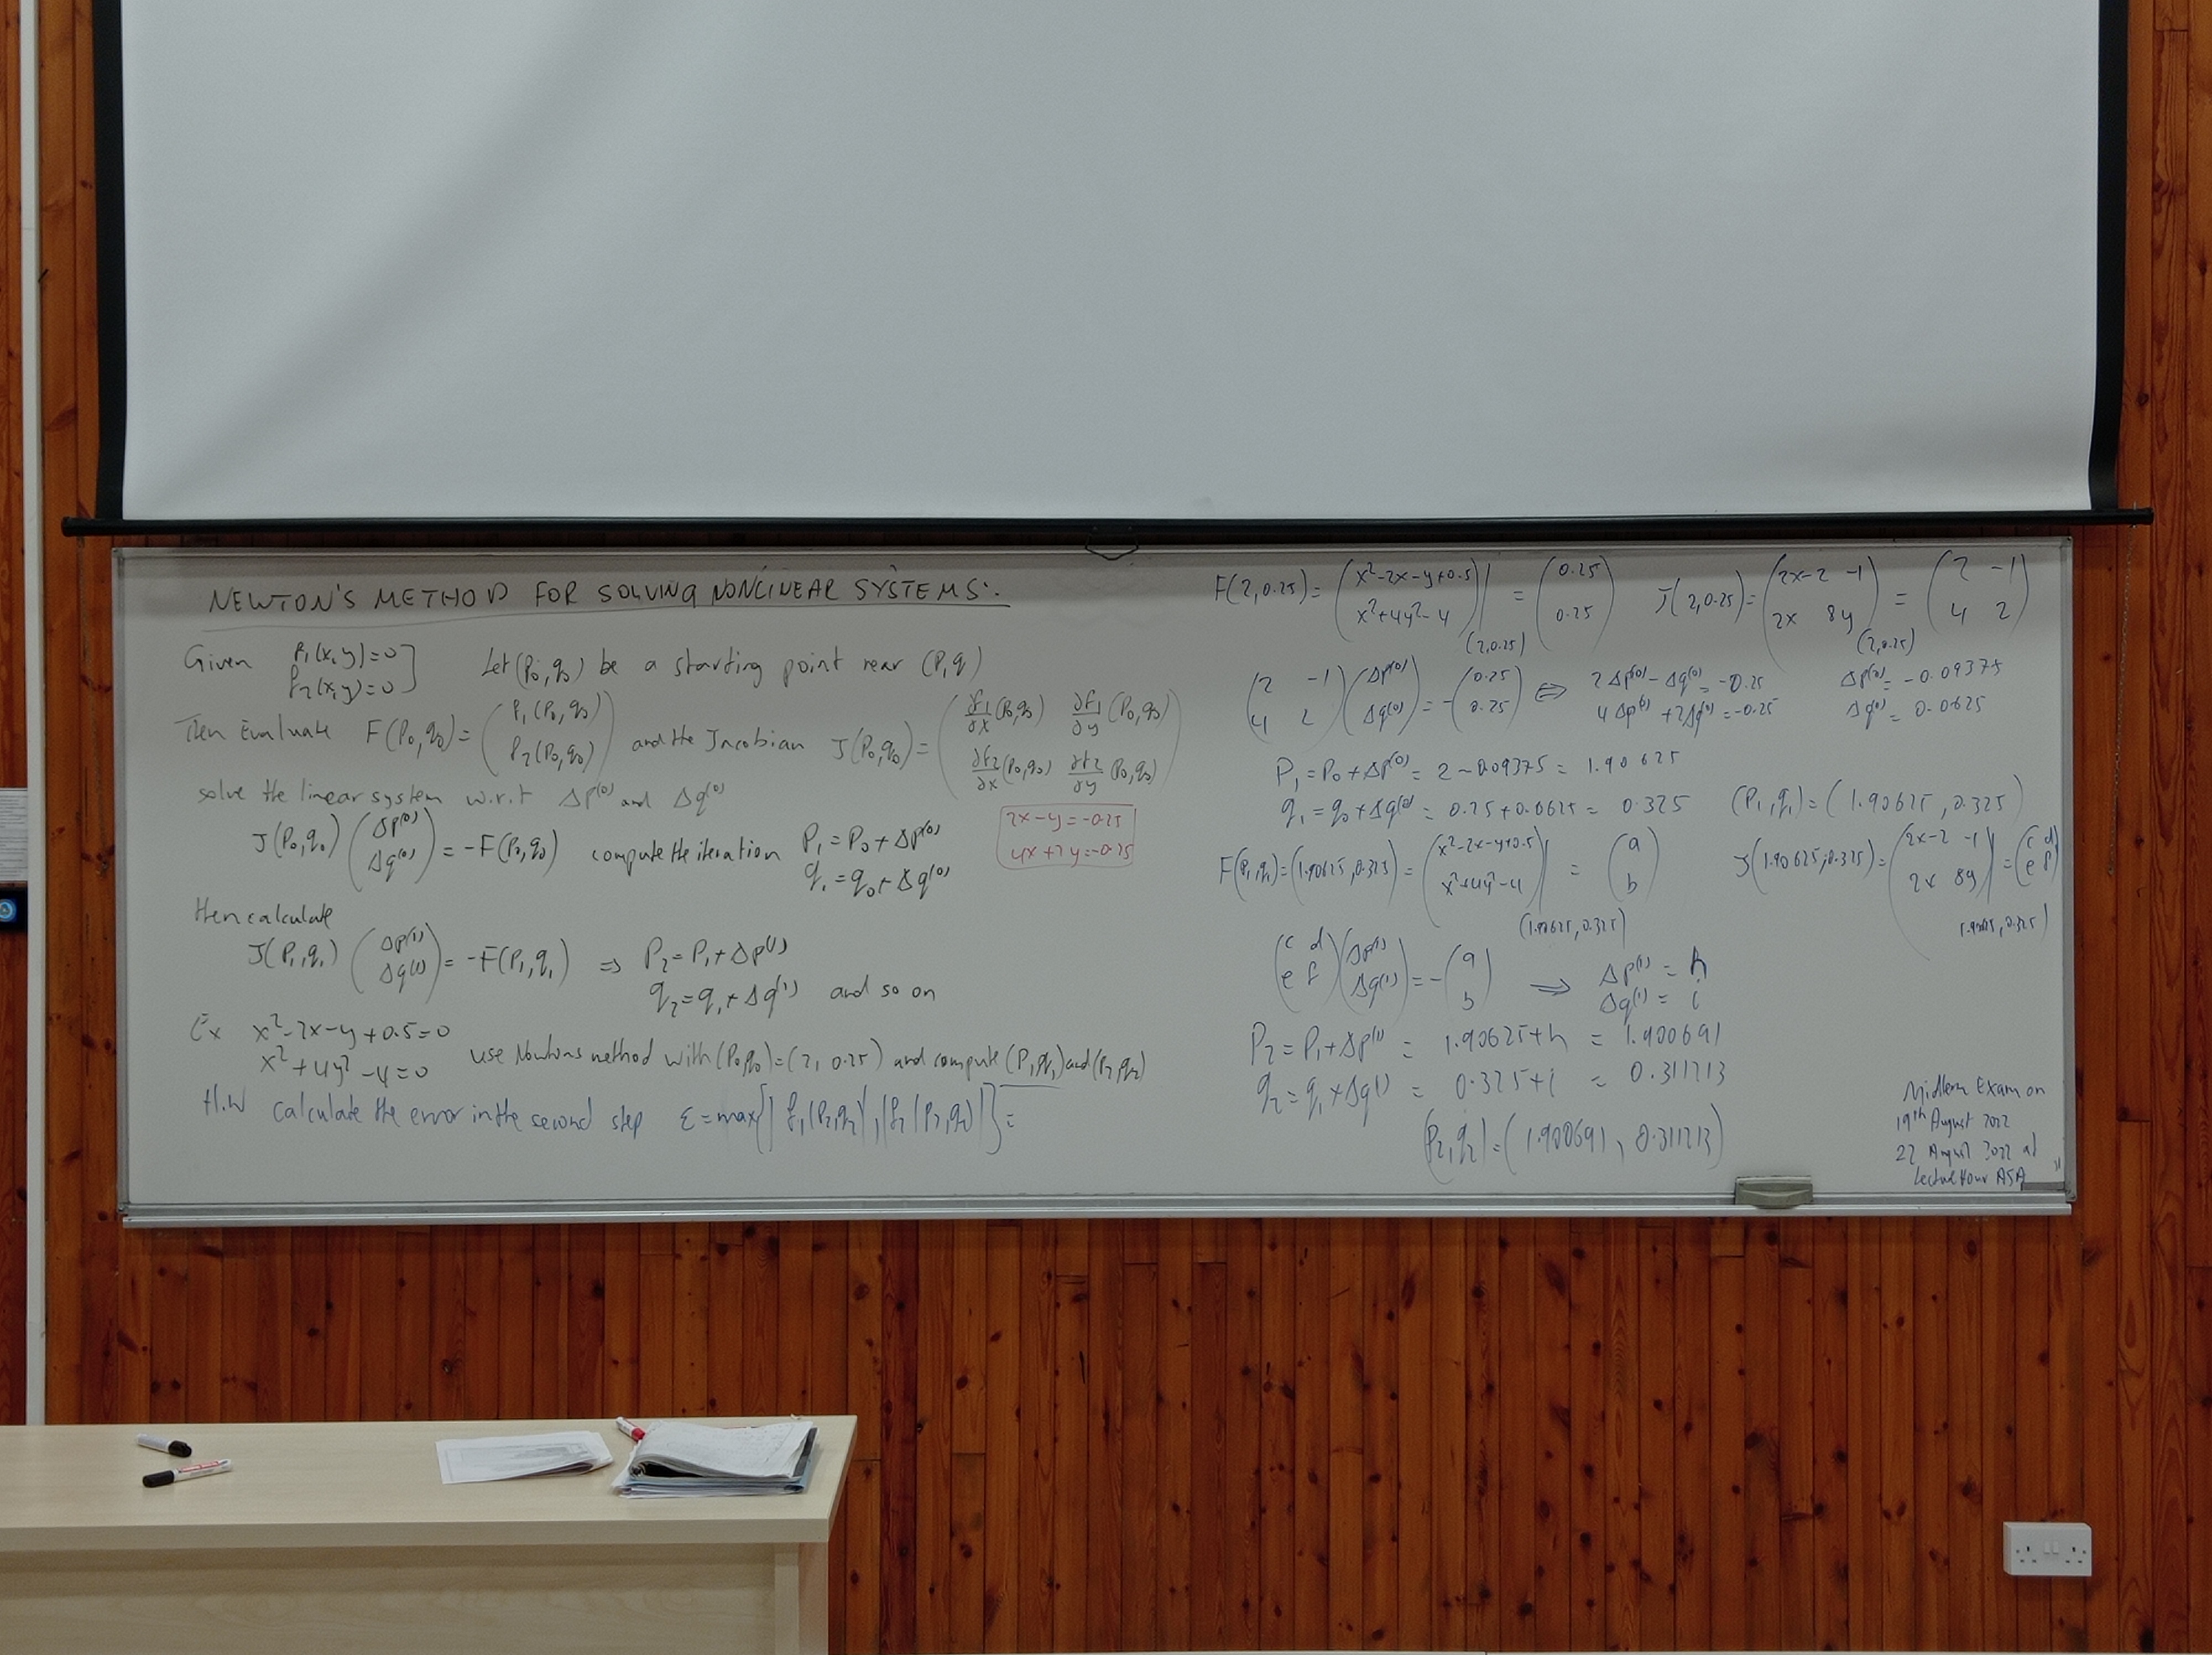 NEWTON'S METHOD FOR SOLVING NONLINEAR SYSTEMS:
Given f₁(x,y)=0
f₂(x,y)=0 ] Let (P₀,q₀) be a starting point near (P,q)
Then Evaluate F(P₀,q₀) = ( f₁(P₀,q₀) ; f₂(P₀,q₀) ) and the Jacobian J(P₀,q₀) = ( ∂f₁/∂x (P₀,q₀) ∂f₁/∂y (P₀,q₀) ; ∂f₂/∂x (P₀,q₀) ∂f₂/∂y (P₀,q₀) )
solve the linear system w.r.t Δp⁽⁰⁾ and Δq⁽⁰⁾
J(P₀,q₀) ( Δp⁽⁰⁾ ; Δq⁽⁰⁾ ) = -F(P₀,q₀) compute the iteration P₁ = P₀ + Δp⁽⁰⁾
q₁ = q₀ + Δq⁽⁰⁾
2x-y=-0.25
4x+2y=-0.25
then calculate
J(P₁,q₁) ( Δp⁽¹⁾ ; Δq⁽¹⁾ ) = -F(P₁,q₁) ⇒ P₂ = P₁ + Δp⁽¹⁾
q₂ = q₁ + Δq⁽¹⁾ and so on
Ex x²-2x-y+0.5=0
x²+4y²-4=0 use Newtons method with (P₀,q₀)=(2, 0.25) and compute (P₁,q₁) and (P₂,q₂)
H.W Calculate the error in the second step ε = max{|f₁(P₂,q₂)|, |f₂(P₂,q₂)|} =
F(2,0.25) = ( x²-2x-y+0.5 ; x²+4y²-4 )| (2,0.25) = ( 0.25 ; 0.25 ) J(2,0.25) = ( 2x-2 -1 ; 2x 8y ) (2,0.25) = ( 2 -1 ; 4 2 )
( 2 -1 ; 4 2 ) ( Δp⁽⁰⁾ ; Δq⁽⁰⁾ ) = - ( 0.25 ; 0.25 ) ⇔ 2Δp⁽⁰⁾ - Δq⁽⁰⁾ = -0.25 Δp⁽⁰⁾ = -0.09375
4Δp⁽⁰⁾ + 2Δq⁽⁰⁾ = -0.25 Δq⁽⁰⁾ = 0.0625
P₁ = P₀ + Δp⁽⁰⁾ = 2 - 0.09375 = 1.90625
q₁ = q₀ + Δq⁽⁰⁾ = 0.25 + 0.0625 = 0.325 (P₁,q₁) = (1.90625, 0.325)
F(P₁,q₁) = (1.90625, 0.325) = ( x²-2x-y+0.5 ; x²+4y²-4 )| (1.90625, 0.325) = ( a ; b ) J(1.90625, 0.325) = ( 2x-2 -1 ; 2x 8y )| 1.90625, 0.325) = ( c d ; e f )
( c d ; e f ) ( Δp⁽¹⁾ ; Δq⁽¹⁾ ) = - ( a ; b ) ⇒ Δp⁽¹⁾ = h
Δq⁽¹⁾ = i
P₂ = P₁ + Δp⁽¹⁾ = 1.90625+h = 1.900691
q₂ = q₁ + Δq⁽¹⁾ = 0.325+i = 0.311213
(P₂,q₂) = (1.900691, 0.311213)
Midterm Exam on
19th August 2022
22 August 2022 at
Lecture Hour ASA